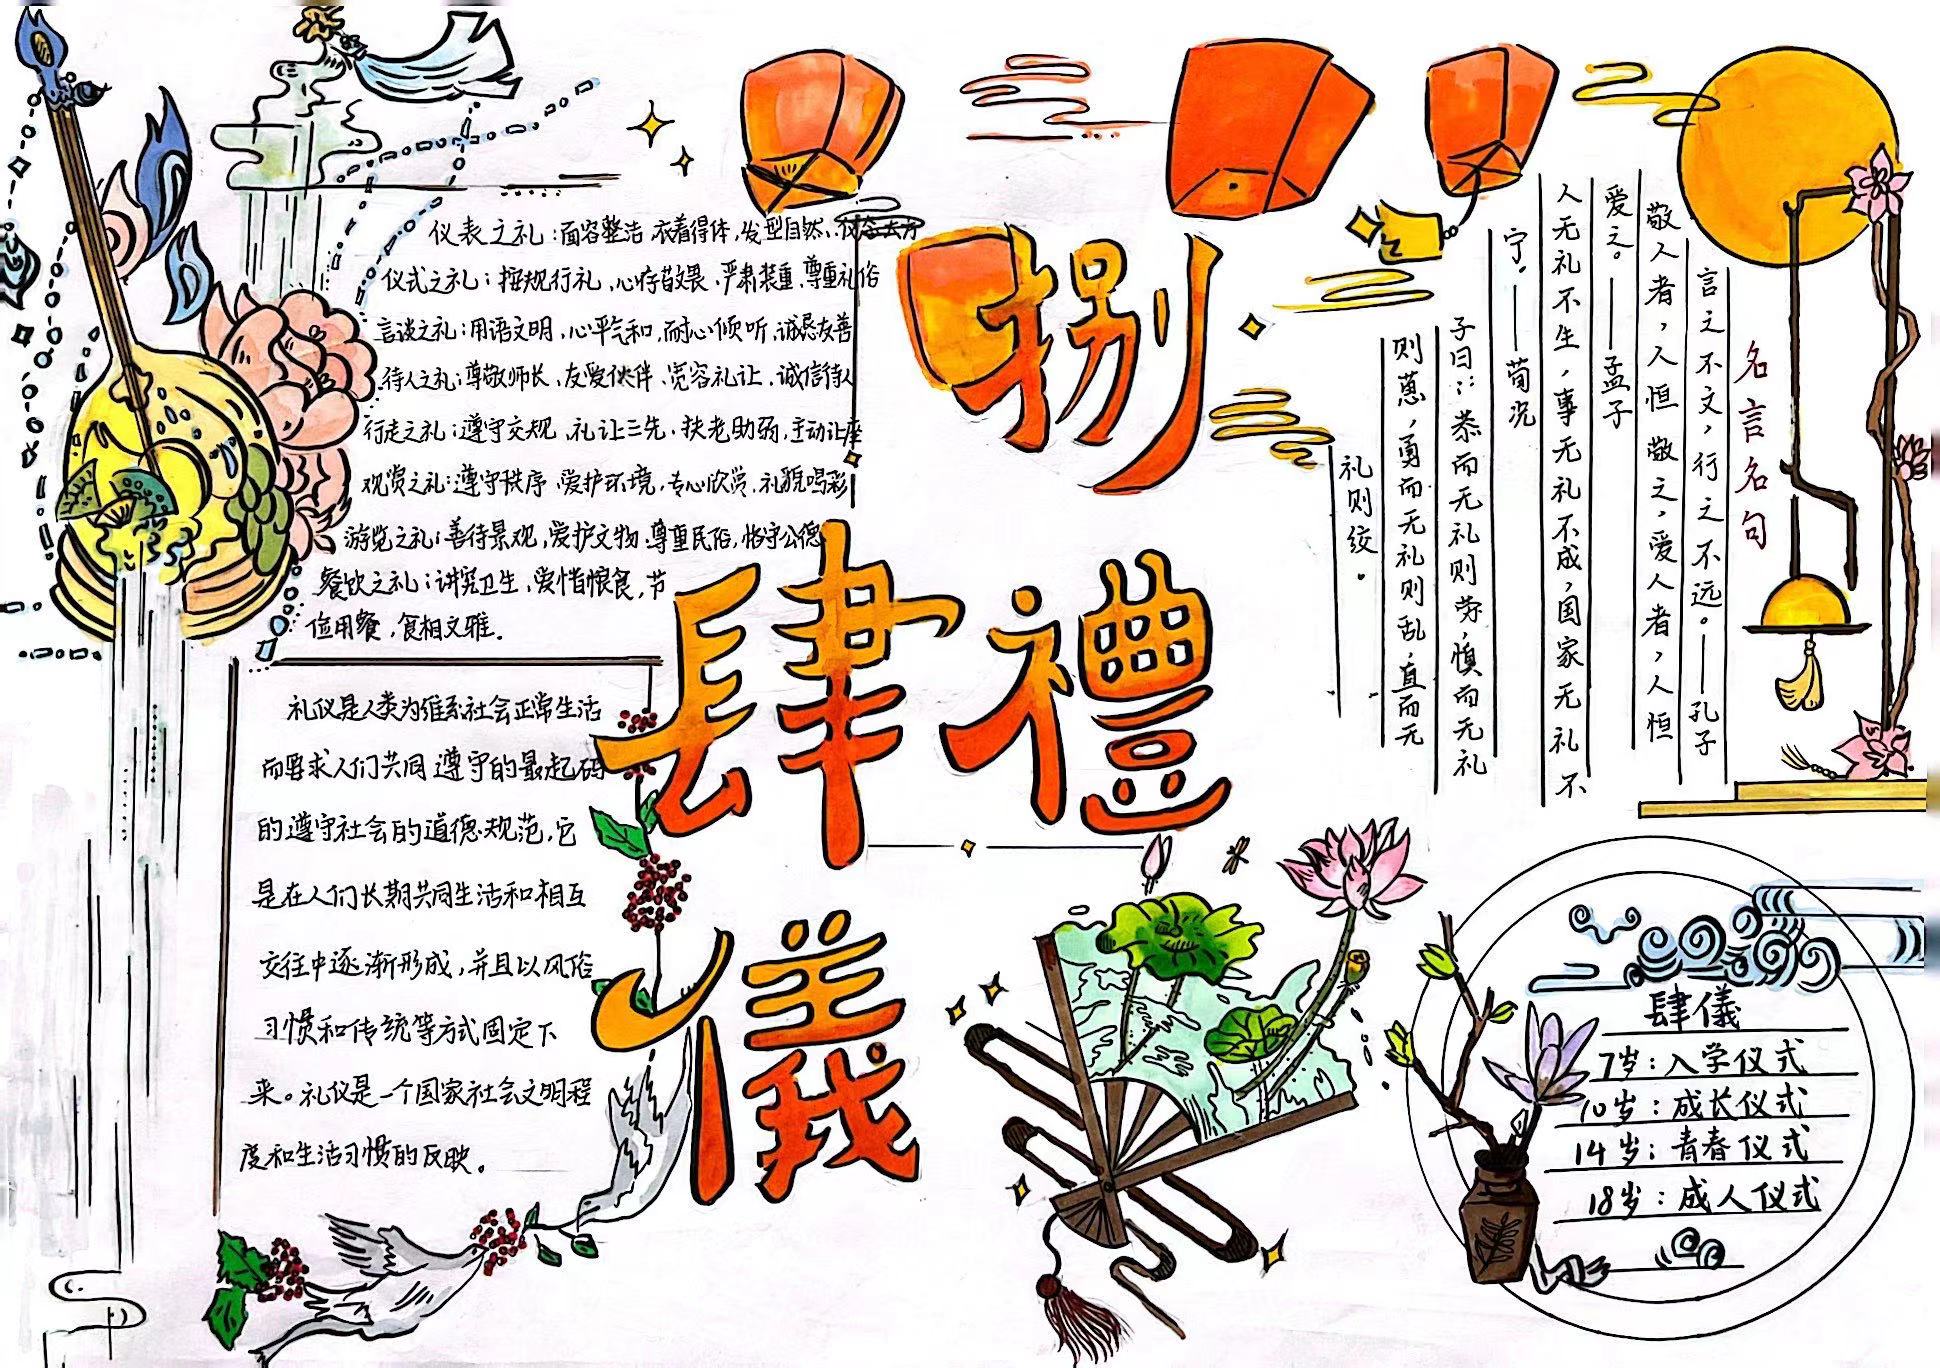 捌禮
肆儀
仪表之礼：面容整洁，衣着得体，发型自然，仪态大方
仪式之礼：按规行礼，心存敬畏，严肃装重，尊重礼俗
言谈之礼：用语文明，心平气和，耐心倾听，诚恳友善
待人之礼：尊敬师长，友爱伙伴，宽容礼让，诚信待人
行走之礼：遵守交规，礼让三先，扶老助弱，主动让座
观赏之礼：遵守秩序，爱护环境，专心欣赏，礼貌喝彩
游览之礼：善待景观，爱护文物，尊重民俗，恪守公德
餐饮之礼：讲究卫生，爱惜粮食，节
俭用餐，食相文雅。
礼仪是人类为维系社会正常生活
而要求人们共同遵守的最起码
的遵守社会的道德规范，它
是在人们长期共同生活和相互
交往中逐渐形成，并且以风俗
习惯和传统等方式固定下
来。礼仪是一个国家社会文明程
度和生活习惯的反映。
名言名句
言之不文，行之不远。——孔子
敬人者，人恒敬之，爱人者，人恒
爱之。——孟子
人无礼不生，事无礼不成，国家无礼不
宁。——荀况
子曰：：恭而无礼则劳，慎而无礼
则葸，勇而无礼则乱，直而无
礼则绞。
肆儀
7岁：入学仪式
10岁：成长仪式
14岁：青春仪式
18岁：成人仪式